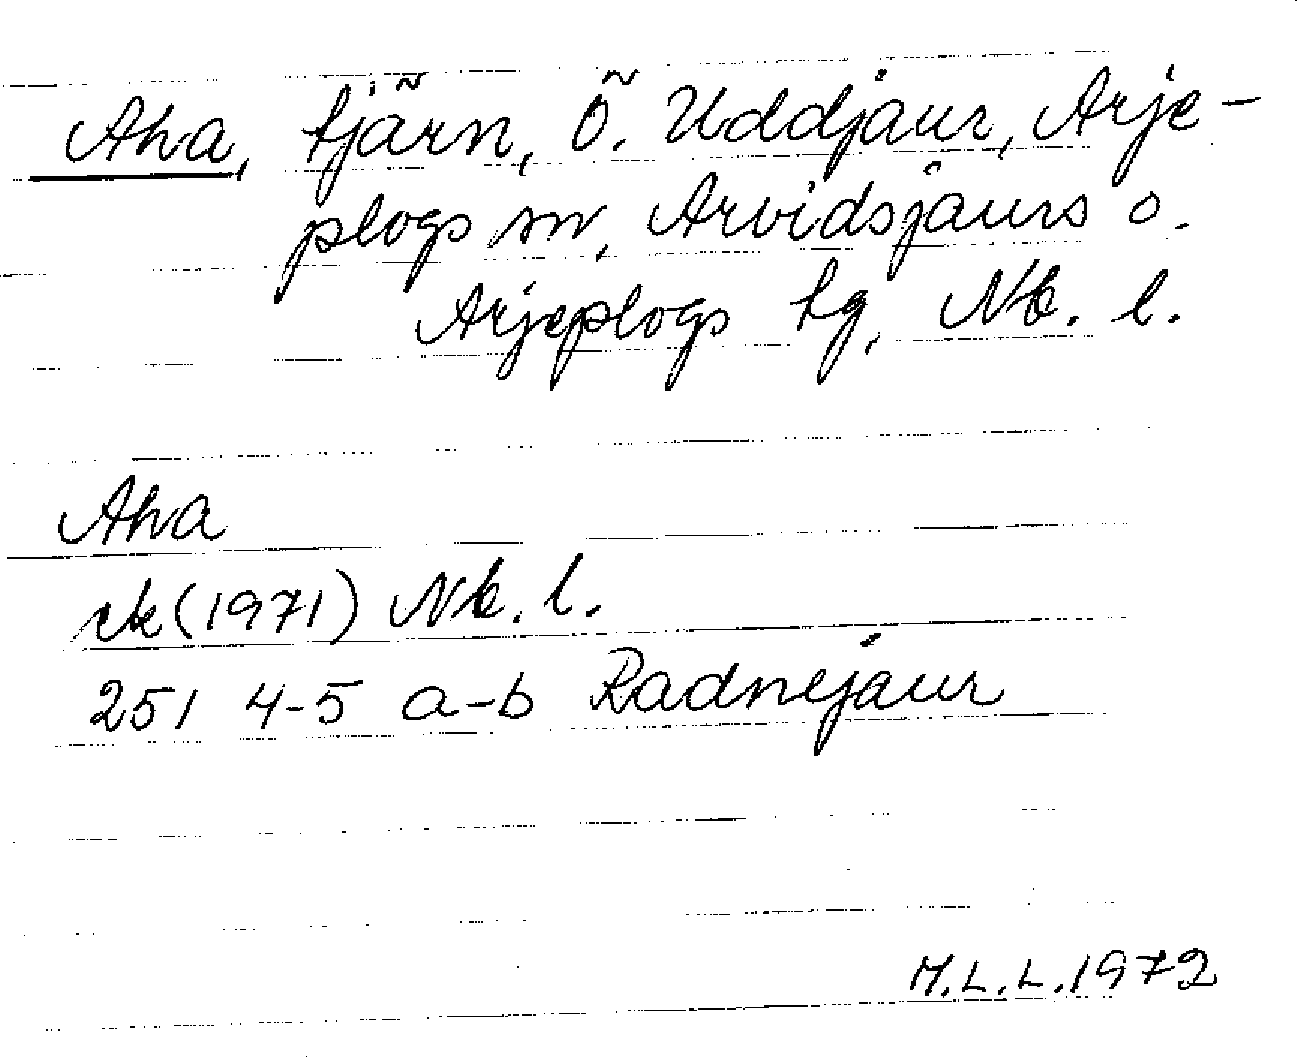 Aha, tjärn, Ö. Uddjaur, Arje-
plogs sn, Arvidsjaurs o.
Arjeplogs tg, Nb. l.
Aha
ek (1971) Nb. l.
251 4-5 a-b Radnejaur
M.L.L. 1972